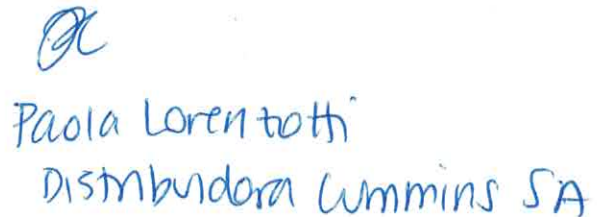 Paola Lorenzotti
Distribuidora Cummins SA